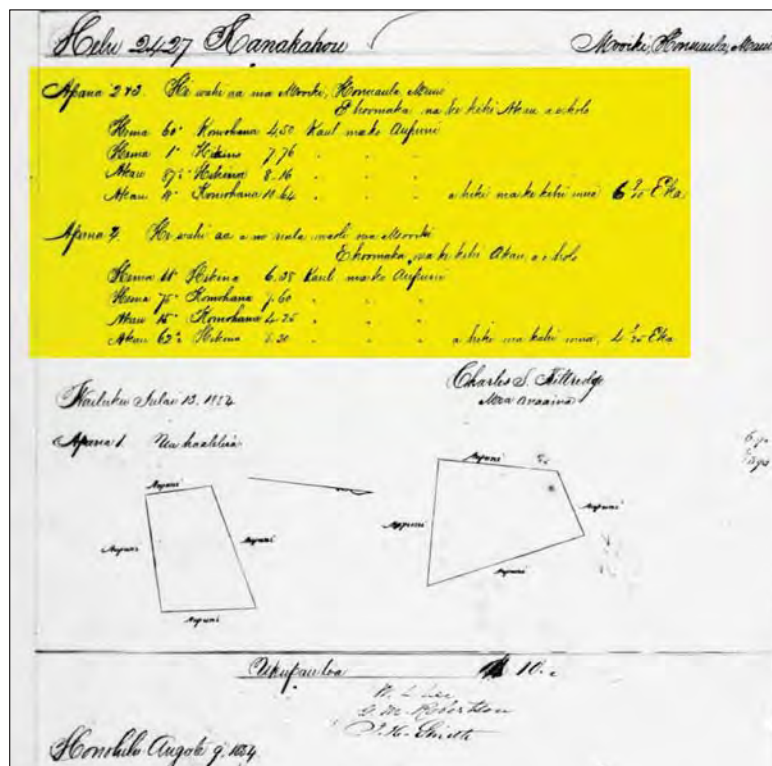 Helu 2427 Kanakahou Mooiki, Honuaula, Maui
Apana 2 & 3. He wahi aa ma Mooiki, Honuaula, Maui
E hoomaka ma ke kihi Akau a e holo
Hema 60° Komohana 4.50 Kaul ma ko Aupuni
Hema 1° Hikina 7.76 " " "
Akau 87½° Hikina 8.16 " " "
Akau Komohana 10.64 " " " a hiki ma ke kihi mua 6 Eka
Apana 4. He wahi aa a me kula maoli ma Mooiki
E hoomaka ma ke kihi Akau, a e holo
Hema Hikina 6.38 Kaul ma ko Aupuni
Hema 75° Komohana 7.60 " " "
Akau 15° Komohana 4.25 " " "
Akau 62° Hikina " " " a hiki ma kahi mua, 4 Eka
Wailuku Iulai 13. 1854 Charles S. Kittredge
Mea anaaina
Apana 1 Ua hoahluia
Aupuni
Aupuni
Aupuni
Aupuni
Aupuni
Aupuni
Aupuni
Aupuni
Ukupau loa 10.
W. L. Lee
G. M. Robertson
J. H. Smith
Honolulu Augate 9. 1854